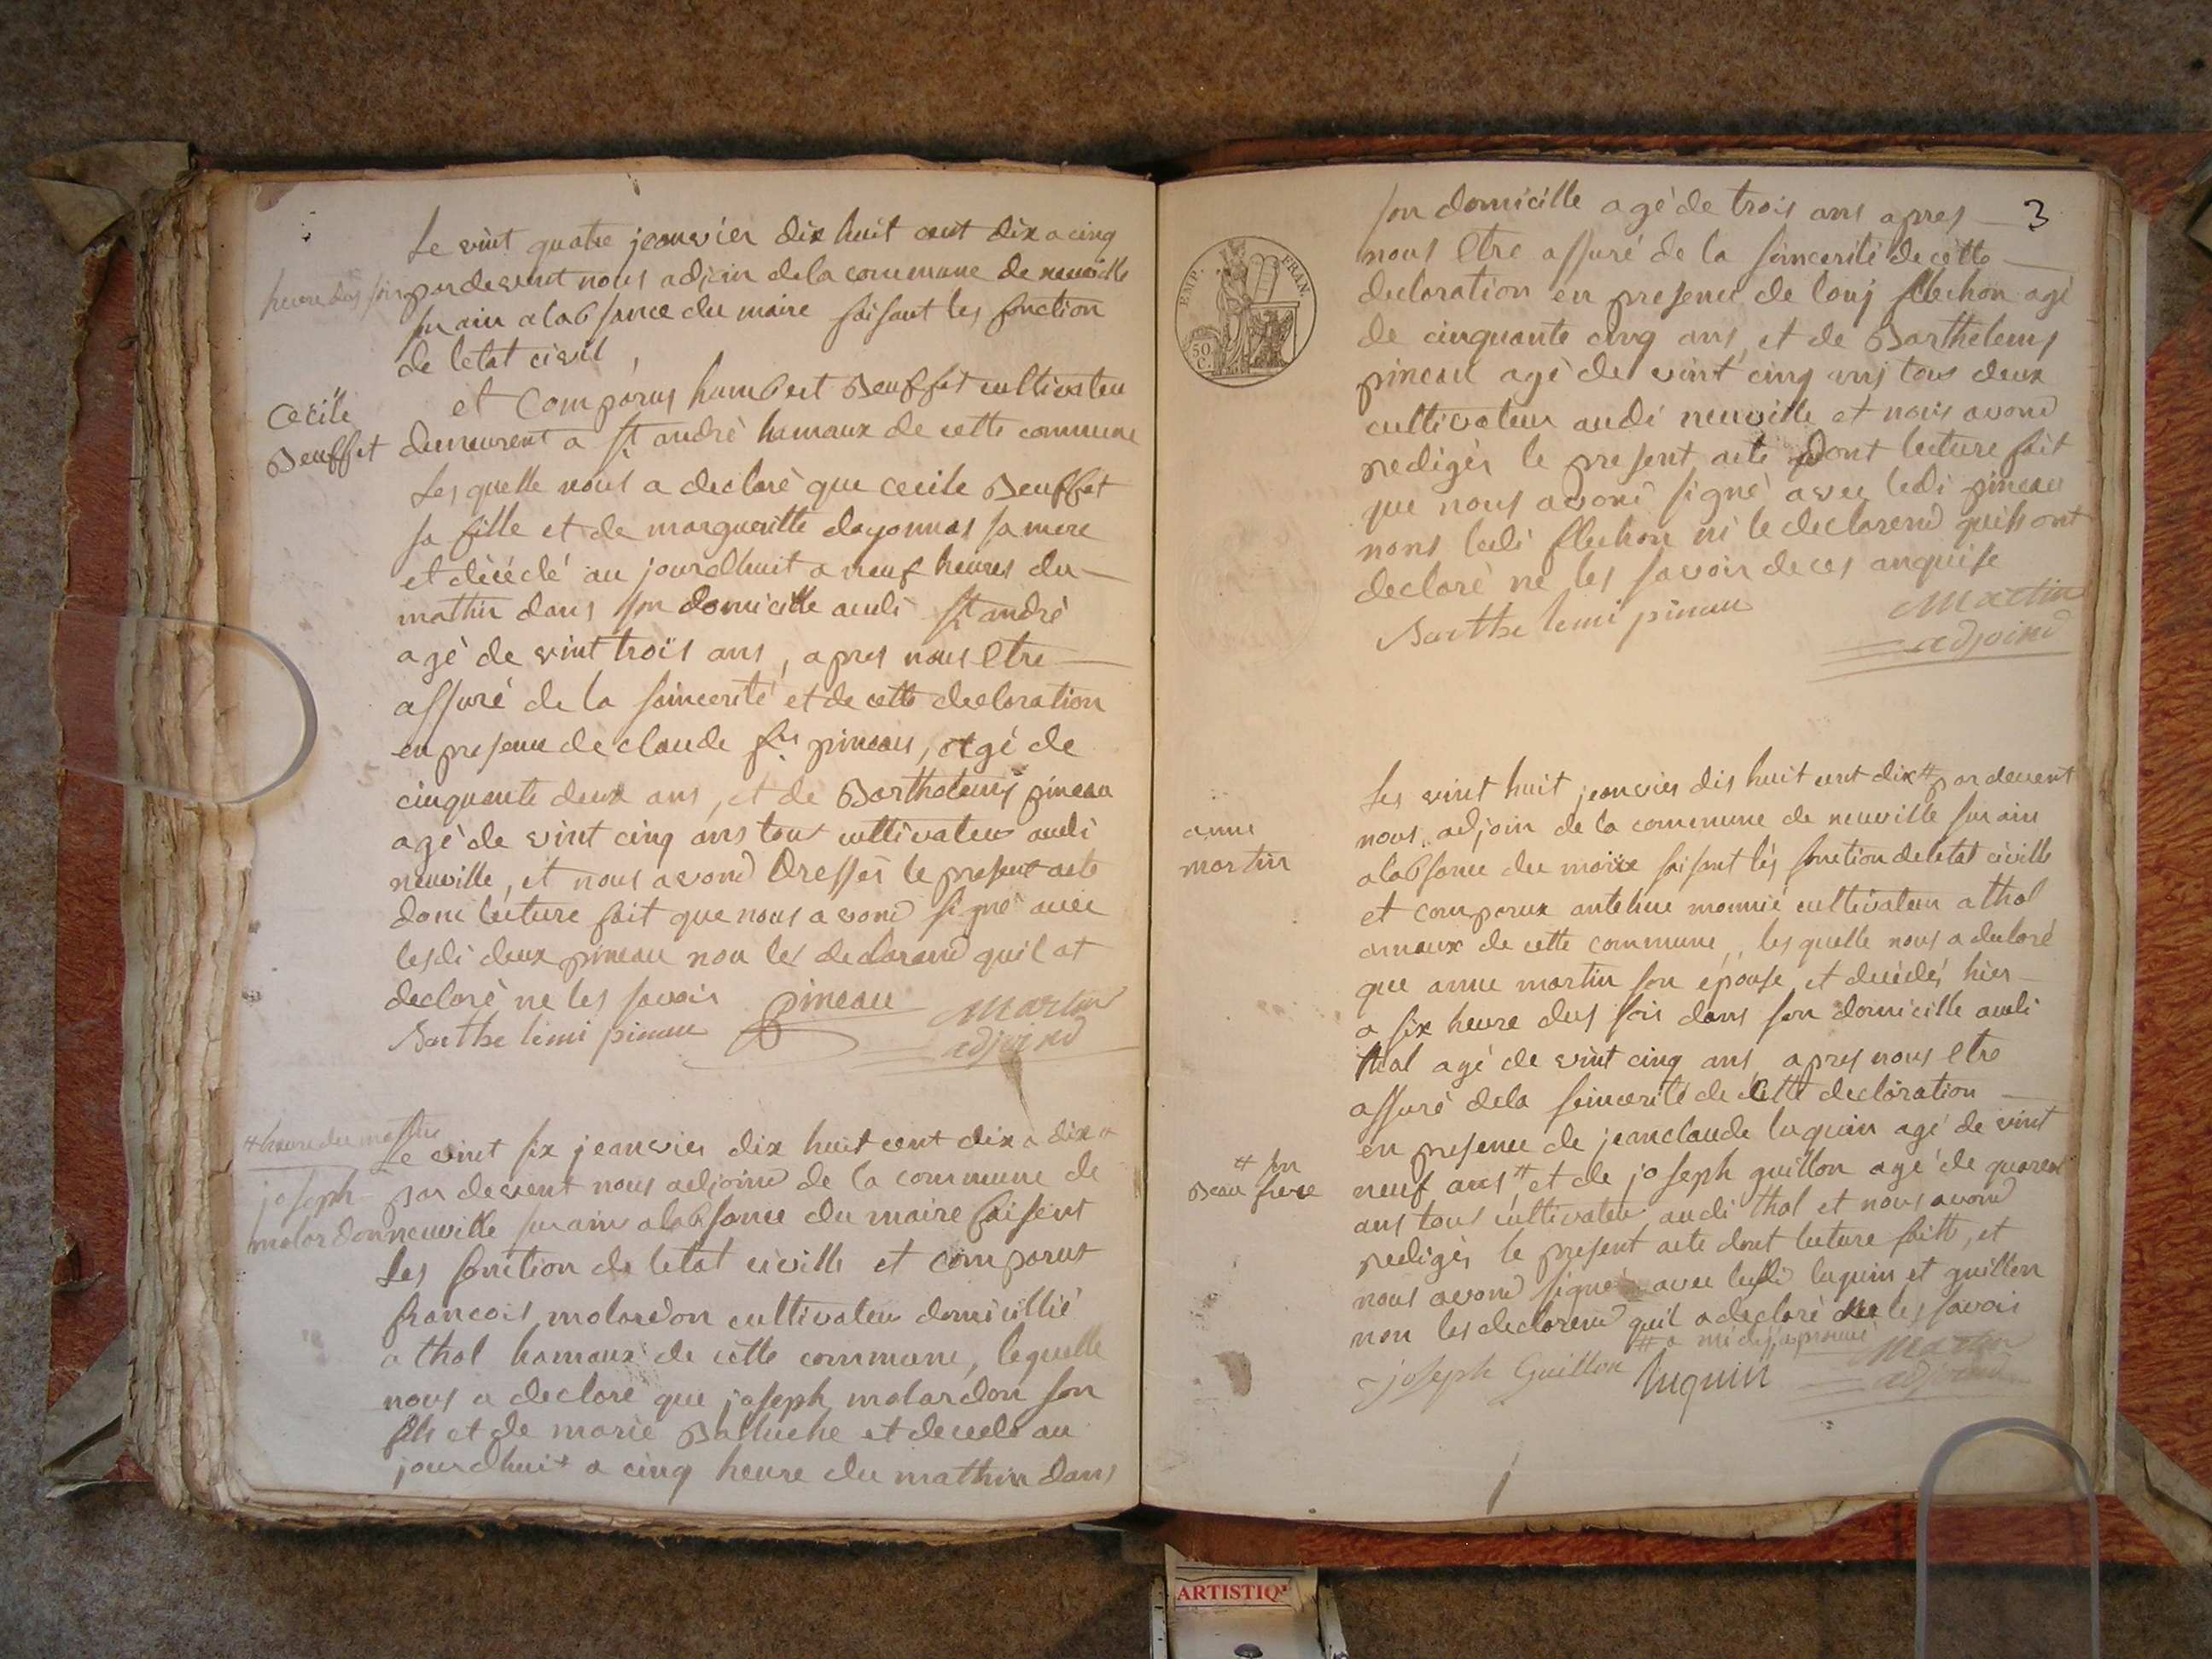 Le vint quatre jeanvier dix huit cent dix a cinq
heure dus soir par devent nous adjoin de la commune de neuville
sur ain a labsance du maire faisant les fonction
de letat civil,
Cecile
Beuffet
et Comparus humbert Beuffet cultivateu
demeurent a St andrè hamaux de cette commune
Les quelle nous a declarè que cecile Beuffet
sa fille et de margueritte doyonnas sa mere
et dècèdé au jourdhuit a neuf heures du
mathin dans son domicille audi St andrè
agè de vint troïs ans, apres nous etre
assuré de la saincerité et de cette decloration
en presence de claude fois pineau, agé de
cinquante deux ans, et de Bartholemy pineau
agè de vint cinq ans tout cultivateur audi
neuville, et nous avond Dressés le present acte
donc lecture fait que nous avond signé avec
lesdi deux pineau non les declarand quil at
declarè ne les savoir
pineau
Martin
adjoind
Barthe lemi pineau
# heure du mathin
Le vint six jeanvier dix huit cent dix a dix #
joseph
molardon
par devent nous adjoind de la commune de
neuville sur ain a labsance du maire faisent
Les fonction de letat civille et comparus
francois molardon cultivateu domicillié
a thol hamaux de cette commune, lequelle
nous a declaré que joseph molardon son
fils et de marie Balluche et decede au
jourdhuit a cinq heure du mathin dans
3
EMP. FRAN.
50 C.
son domicille agè de trois ans apres
nous etre assuré de la saincerité de cette
decloration en presence de louis flechon agé
de cinquante cinq ans, et de Barthelemy
pineau agè de vint cinq ans tous deux
cultivateur audi neuville et nous avond
redigés le present acte Dont lecture fait
que nous avons signé avec ledi pineau
nons ledi flechon ni le declarend quils ont
declarè ne les savoir de ces anquise
Barthe lemi pineau
Martin
adjoind
anne
martin
Les vint huit jeanvier dis huit cent dix # par devent
nous adjoin de la commune de neuville sur ain
a labsance du maire faisant les fonction de letat civille
et comparux antelme monnié cultivateur a thol
amaux de cette commune, les quelle nous a declaré
que anne martin son épouse et dècèdés hier
a six heure dus soir dans son domicille audi
thol agé de vint cinq ans, apres nous etre
assuré dela saincerité de cette decloration
en presence de jeanclaude luquin agé de vint
# son
Beau frere
neuf ans # et de joseph guillon agé de quarent
ans tous cultivateu audi thol et nous avond
redigés le present acte dont lecture faitte, et
nous avond signé avec lesdi luquin et guillon
non les declarend quil a declaré ne les savoir
joseph Guillon
luquin
Martin
adjoind